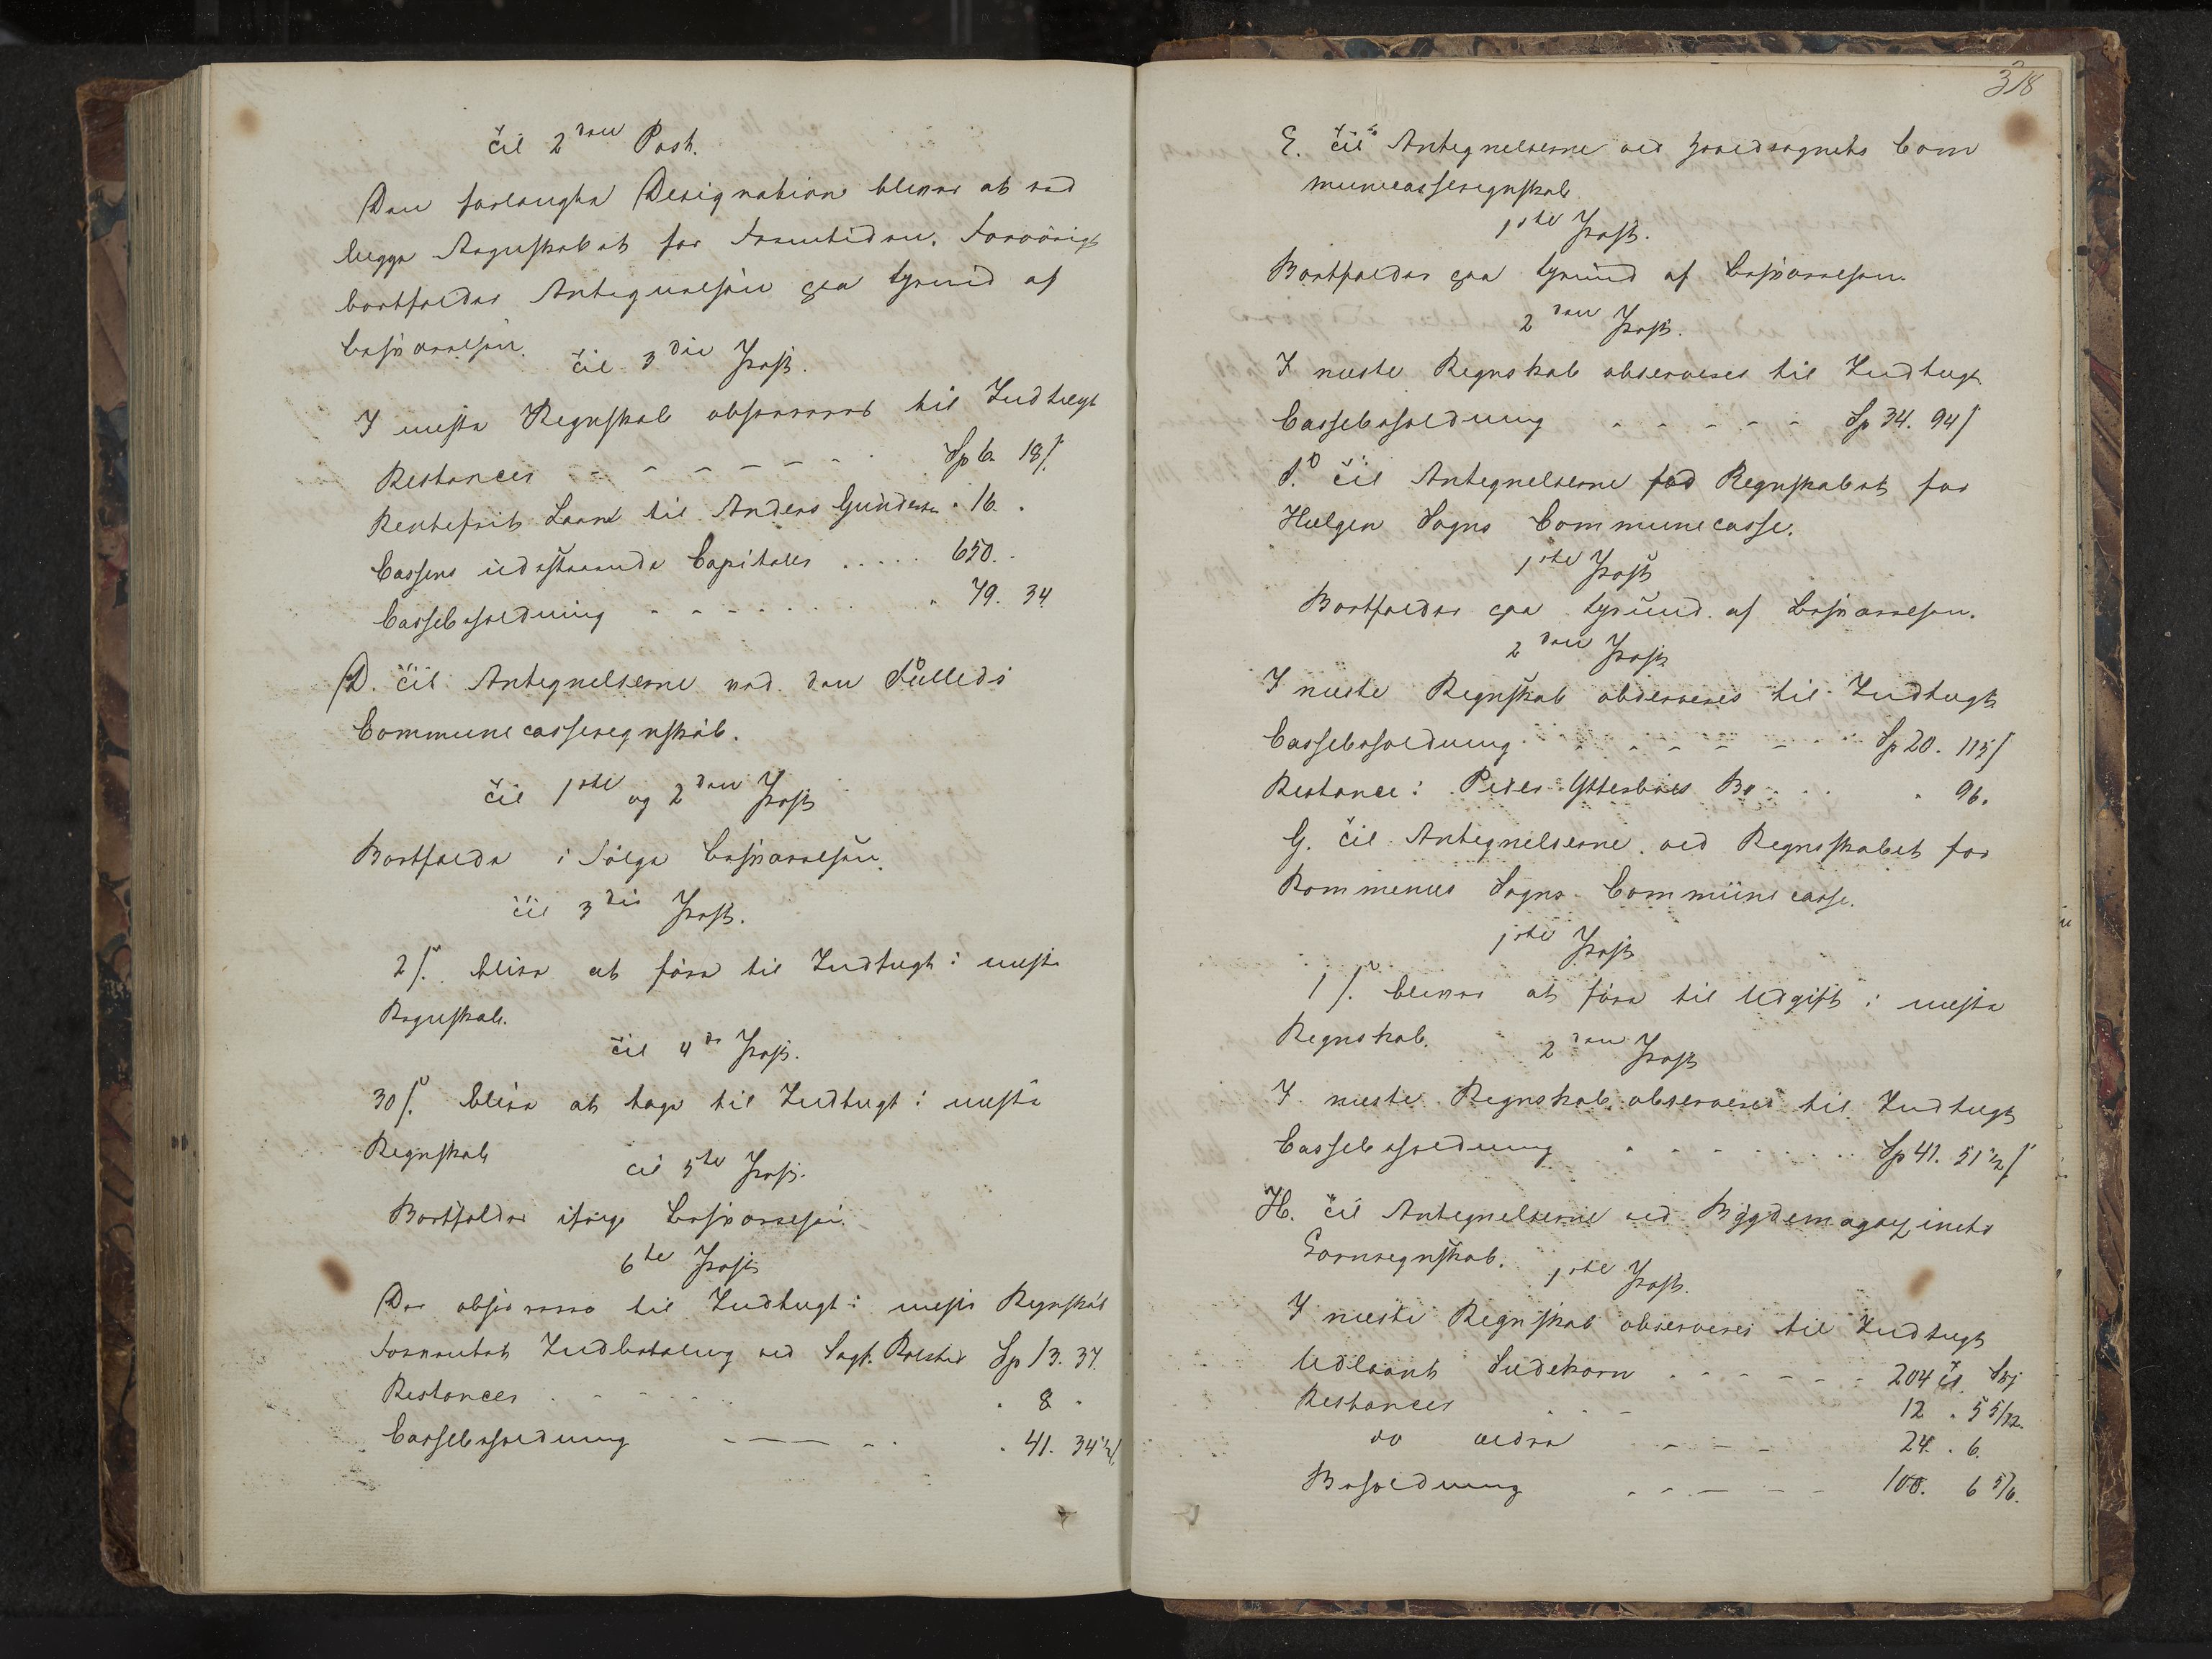 Til 2den Post.
Den forlangte Designation bliver at ved
lægge Regnskabet for Fremtiden. Forøvrigt
bortfalder Antegnelsen paa Grund af
Besvarelsen.
Til 3die Post.
I næste Regnskab observeres til Indtægt
Restancer - - - - - - Sp 6. 18 ß.
Rentefrit Laan til Anders Gundersen " 16. "
Cassens udestaaende Capitaler ..... 650. "
Cassebeholdning - - - - - " 79. 34
D. Til Antegnelserne ved den
Communecasseregnskab.
Til 1ste og 2den Post
Bortfalde i Følge Besvarelsen.
Til 3die Post.
2 ß. blive at føre til Indtægt i næste
Regnskab.
Til 4de Post.
30 ß. blive at tage til Indtægt i næste
Regnskab
Til 5te Post.
Bortfalder ifølge Besvarelsen.
6te Post
Der observeres til Indtægt i næste Regnskab
Formentet Indbetaling ved Sagf. Sp 13. 37.
Restancer - - - - " 8 "
Cassebeholdning - - - - " 41. 34 1/2
318
E. Til Antegnelserne ved Hovedsognets Com
municasseregnskab
1ste Post.
Bortfalder paa Grund af Besvarelsen.
2den Post.
I næste Regnskab observeres til Indtægt
Cassebeholdning - - - - - Sp 34. 94 ß
F. Til Antegnelserne ved Regnskabet for
Helgen Sogns Communecasse.
1ste Post
Bortfalder paa Grund af Besvarelsen.
2den Post
I næste Regnskab observeres til Indtægt
Cassebeholdning - - - - - Sp 20. 115 ß
Restance: Peder Ytterbøes Bo . . . " 96.
G. Til Antegnelserne ved Regnskabet for
Rommenes Sogns Communecasse.
1ste Post
1 ß. bliver at føre til Udgift i næste
Regnskab.
2den Post
I næste Regnskab observeres til Indtægt
Cassebeholdning - - - - - Sp 41. 51 1/2 ß
H. Til Antegnelserne ved Bygdemagazinets
Kornregnskab.
1ste Post.
I næste Regnskab observeres til Indtægt
Udlaant Sædekorn - - - - - - 204 Td.
Restancer - - - 12 " 5 5/12.
do ældre - - - - 24. " 6.
Beholdning - - - - - 100. 6 5/6.